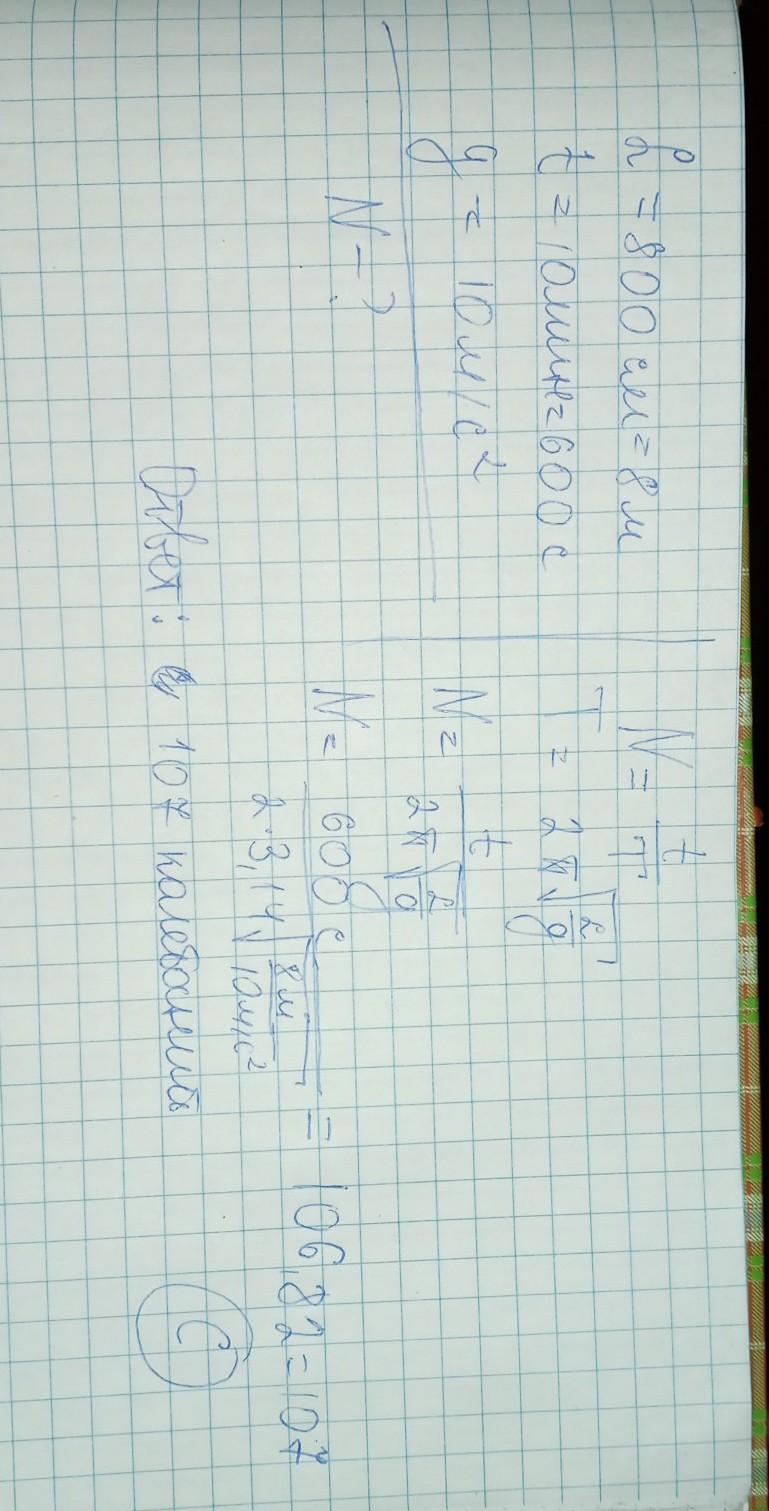 l = 800 см = 8 м
t = 10 мин = 600 с
g = 10 м/с²
N - ?
N = t/T
T = 2π√(l/g)
N = t/(2π√(l/g))
N = 600 с/(2·3,14√(8 м/10 м/с²)) = 106,82 = 107
Ответ: 107 колебаний
C